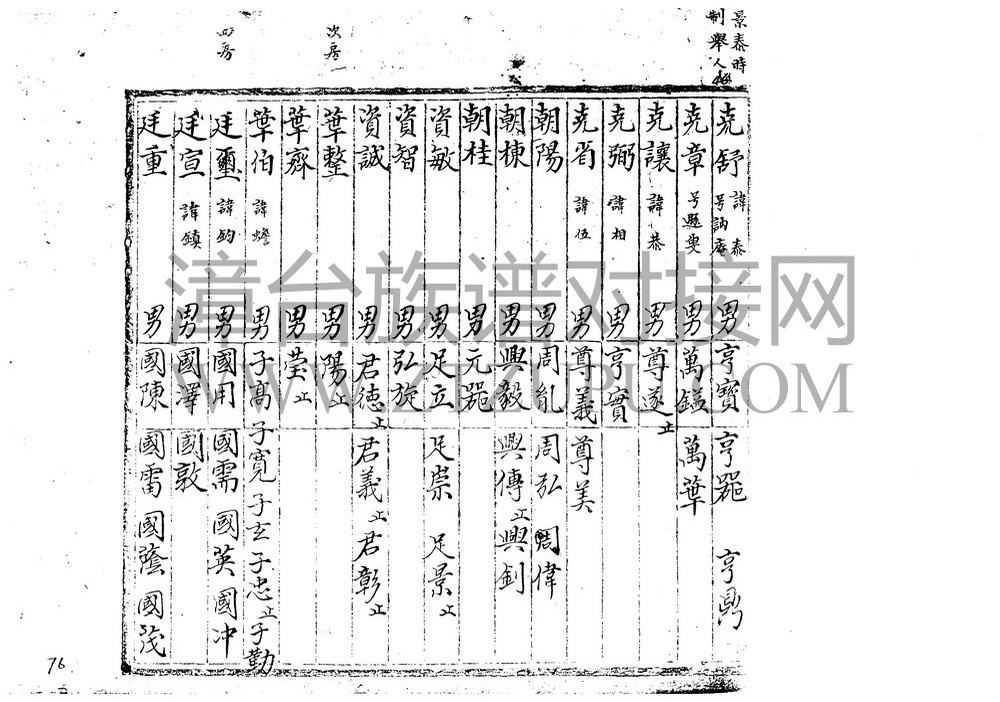 景泰時
制舉人
次房
四房
堯舒 諱泰 号訥庵 男 亨寶 亨噐 亨鼎
堯章 号懸叟 男 萬鎰 萬葉
堯讓 諱恭 男 尊遂止
堯弼 諱相 男 亨實
堯省 諱伍 男 尊義 尊美
朝陽 男 周胤 周弘 周偉
朝棟 男 興毅 興傳止 興釗
朝桂 男 元噐
資敏 男 足立 足崇 足景止
資智 男 弘旋
資誠 男 君德止 君義止 君彰止
葉整 男 陽止
葉齊 男 瑩止
葉伯 諱蟾 男 子高 子寬 子玄 子忠止 子勤
廷爾 諱鈞 男 國用 國需 國英 國冲
廷宣 諱鎮 男 國澤 國敦
廷重 男 國陳 國雷 國蔭 國茂
76
漳台族谱对接网
WWW.ZTZUPU.COM